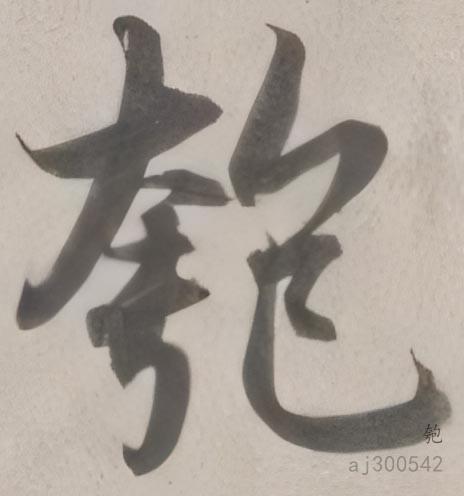 匏
匏
aj300542